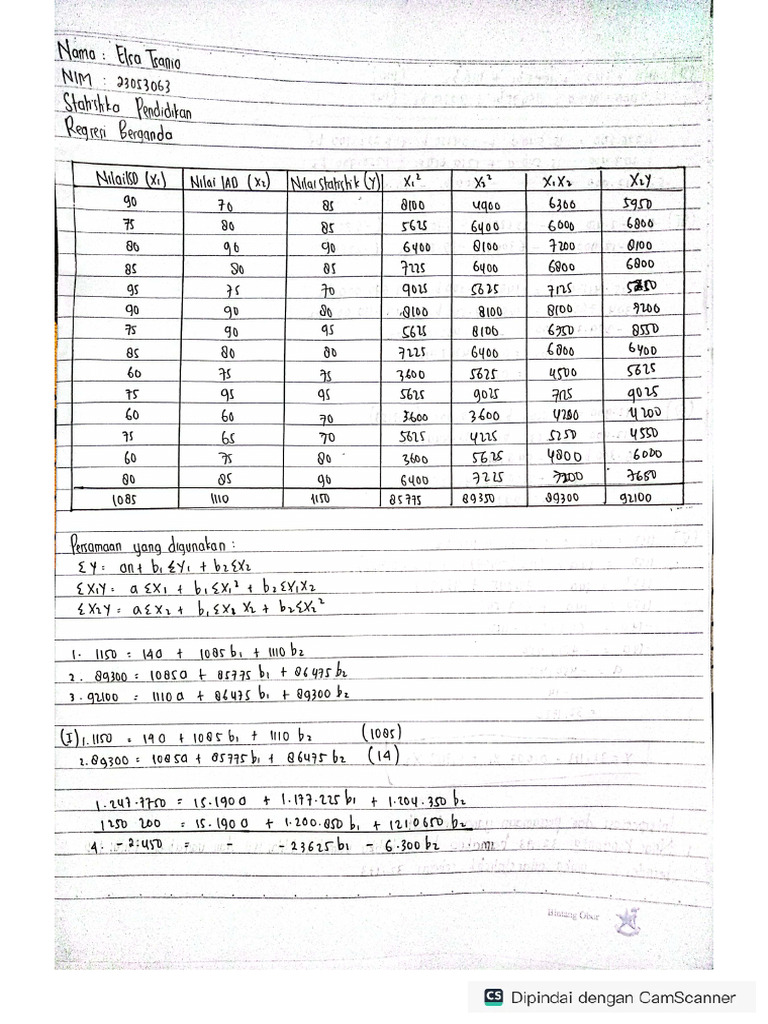 Nama : Elsa Tsania
NIM : 23053063
Statistika Pendidikan
Regresi Berganda
Nilai ISD (X1) Nilai IAD (X2) Nilai Statistik (Y) X1² X2² X1X2 X2Y
90 70 85 8100 4900 6300 5950
75 80 85 5625 6400 6000 6800
80 90 90 6400 8100 7200 8100
85 80 85 7225 6400 6800 6800
95 75 70 9025 5625 7125
90 90 80 8100 8100 8100 7200
75 90 95 5625 8100 6750 8550
85 80 80 7225 6400 6800 6400
60 75 75 3600 5625 4500 5625
75 95 95 5625 9025 7125 9025
60 60 70 3600 3600 4200 4200
75 65 70 5625 4225 5250 4550
60 75 80 3600 5625 4800 6000
80 85 90 6400 7225 7200 7650
1085 1110 1150 85775 89350 89300 92100
Persamaan yang digunakan :
ΣY = an + b1ΣY1 + b2ΣX2
ΣX1Y = aΣX1 + b1ΣX1² + b2ΣX1X2
ΣX2Y = aΣX2 + b1ΣX1X2 + b2ΣX2²
1. 1150 = 14a + 1085b1 + 1110b2
2. 89300 = 1085a + 85775b1 + 86475b2
3. 92100 = 1110a + 86475b1 + 89300b2
(I) 1. 1150 = 190 + 1085b1 + 1110b2 (1085)
2. 89300 = 1085a + 85775b1 + 86475b2 (14)
1.247.7750 = 15.190a + 1.177.225b1 + 1.204.350b2
1250 200 = 15.190a + 1.200.850b1 + 1210650b2
4. -2.450 = - -23625b1 - 6.300b2
Bintang Obor
CS Dipindai dengan CamScanner